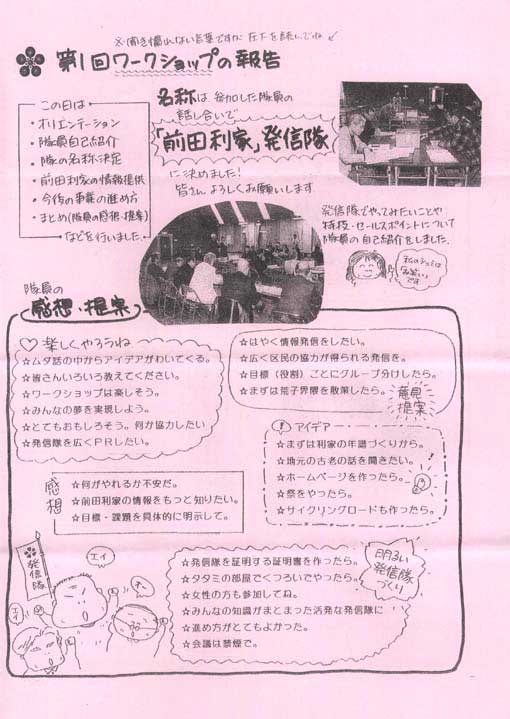 ※聞き慣れない言葉ですが 左下を読んでね
第1回ワークショップの報告
この日は
・オリエンテーション
・隊員自己紹介
・隊の名称決定
・前田利家の情報提供
・今後の事業の進め方
・まとめ(隊員の感想・提案)
などを行いました。
名称は 参加した隊員の
話し合いで
「前田利家」発信隊
に決めました!
皆さんよろしくお願いします
発信隊でやってみたいことや
特技・セールスポイントについて
隊員の自己紹介をしました。
私のシュミは
です
隊員の
感想・提案
♡楽しくやろうね
☆ムダ話の中からアイデアがわいてくる。
☆皆さんいろいろ教えてください。
☆ワークショップは楽しそう。
☆みんなの夢を実現しよう。
☆とてもおもしろそう。何か協力したい
☆発信隊を広くPRしたい。
☆はやく情報発信をしたい。
☆広く区民の協力が得られる発信を。
☆目標(役割)ごとにグループ分けしたら。
☆まずは荒子界隈を散策したら。
意見
提案
! アイデア
☆まずは利家の年譜づくりから。
☆地元の古老の話を聞きたい。
☆ホームページを作ったら。
☆祭をやったら。
☆サイクリングロードも作ったら。
感想
☆何がやれるか不安だ。
☆前田利家の情報をもっと知りたい。
☆目標・課題を具体的に明示して。
発信隊
エイ
エイ
オー
☆発信隊を証明する証明書を作ったら。
☆タタミの部屋でくつろいでやったら。
☆女性の方も参加してね。
☆みんなの知識がまとまった活発な発信隊に
☆進め方がとてもよかった。
☆会議は禁煙で。
明るい
発信隊
づくり